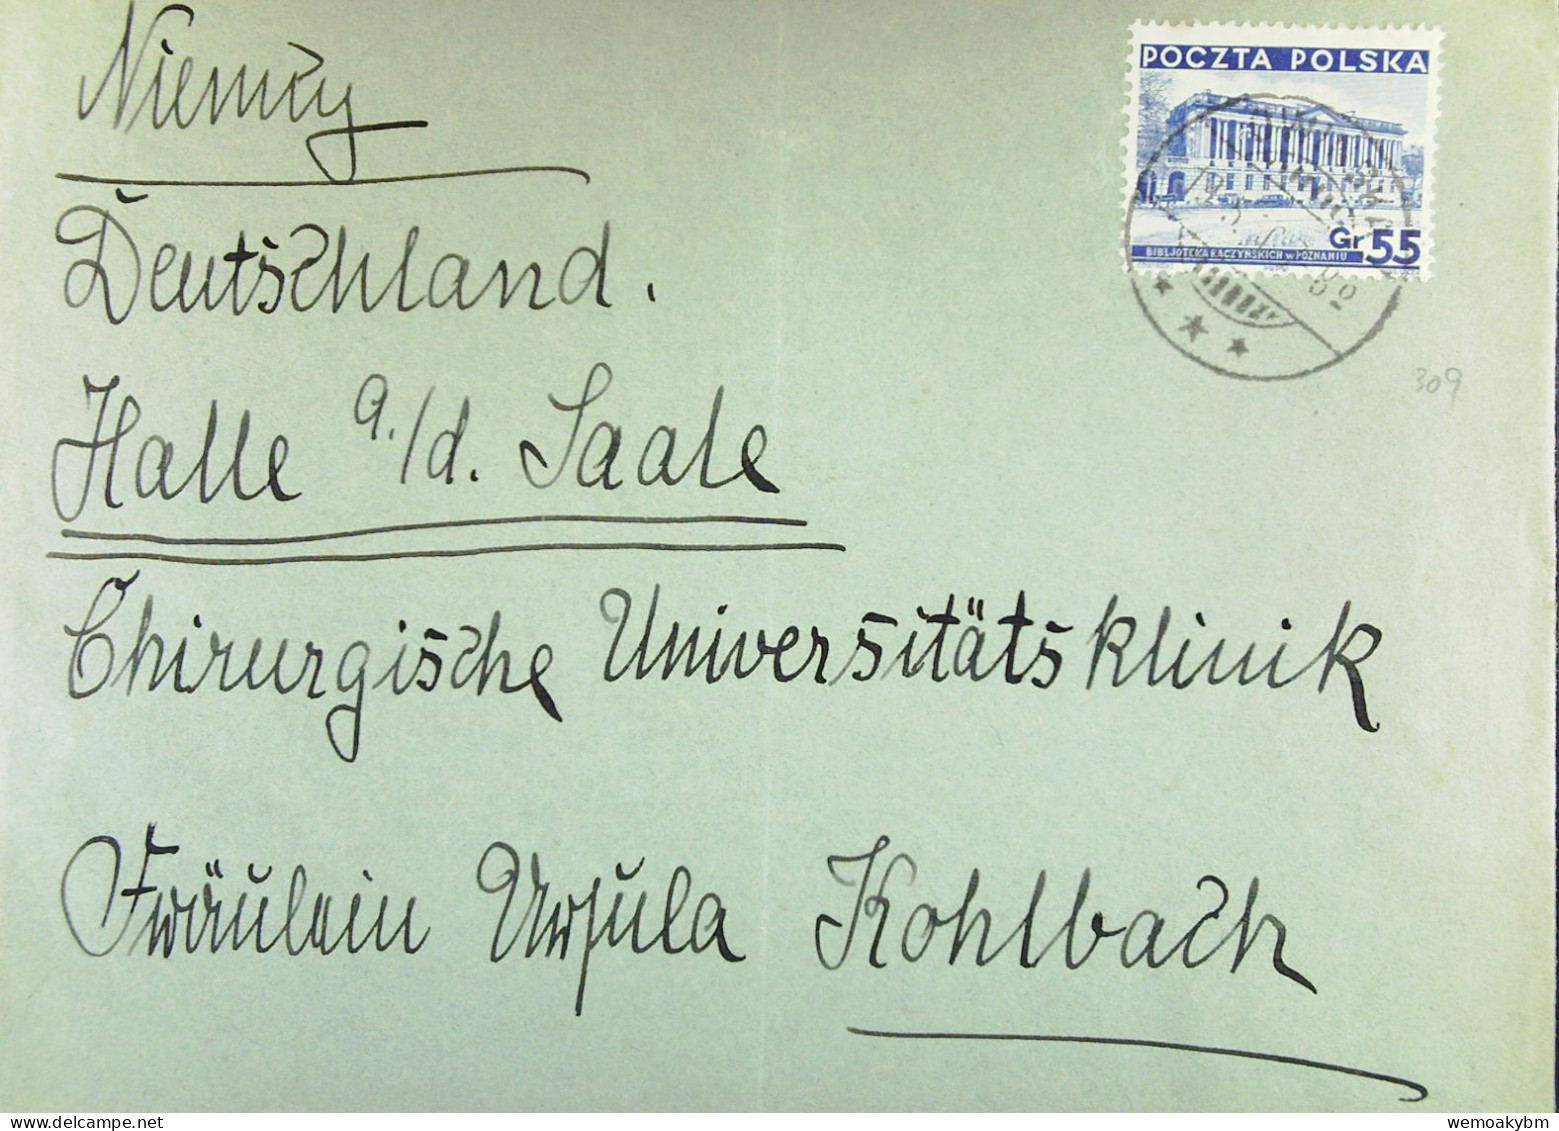 Niemcy
POCZTA POLSKA
Gr 55
BIBLJOTEKA RACZYŃSKICH w POZNANIU
Deutschland.
309
Halle a./d. Saale
Chirurgische Universitätsklinik
Fräulein Ursula Kohlbach
wemoakybm